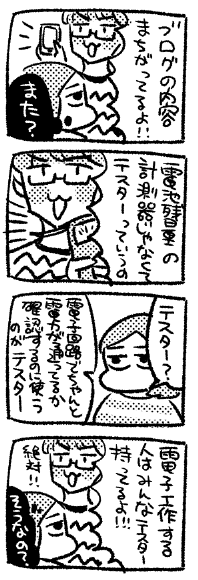 ブログの内容
まちがってるよ!!
また?
電池残量の
計測器じゃなくて
テスターっていうの
テスター?
電子回路でちゃんと
電力が通ってるか
確認するのに使う
のがテスター
電子工作する
人はみんなテスター
持ってるよ!!!
絶対!!
そうなの?